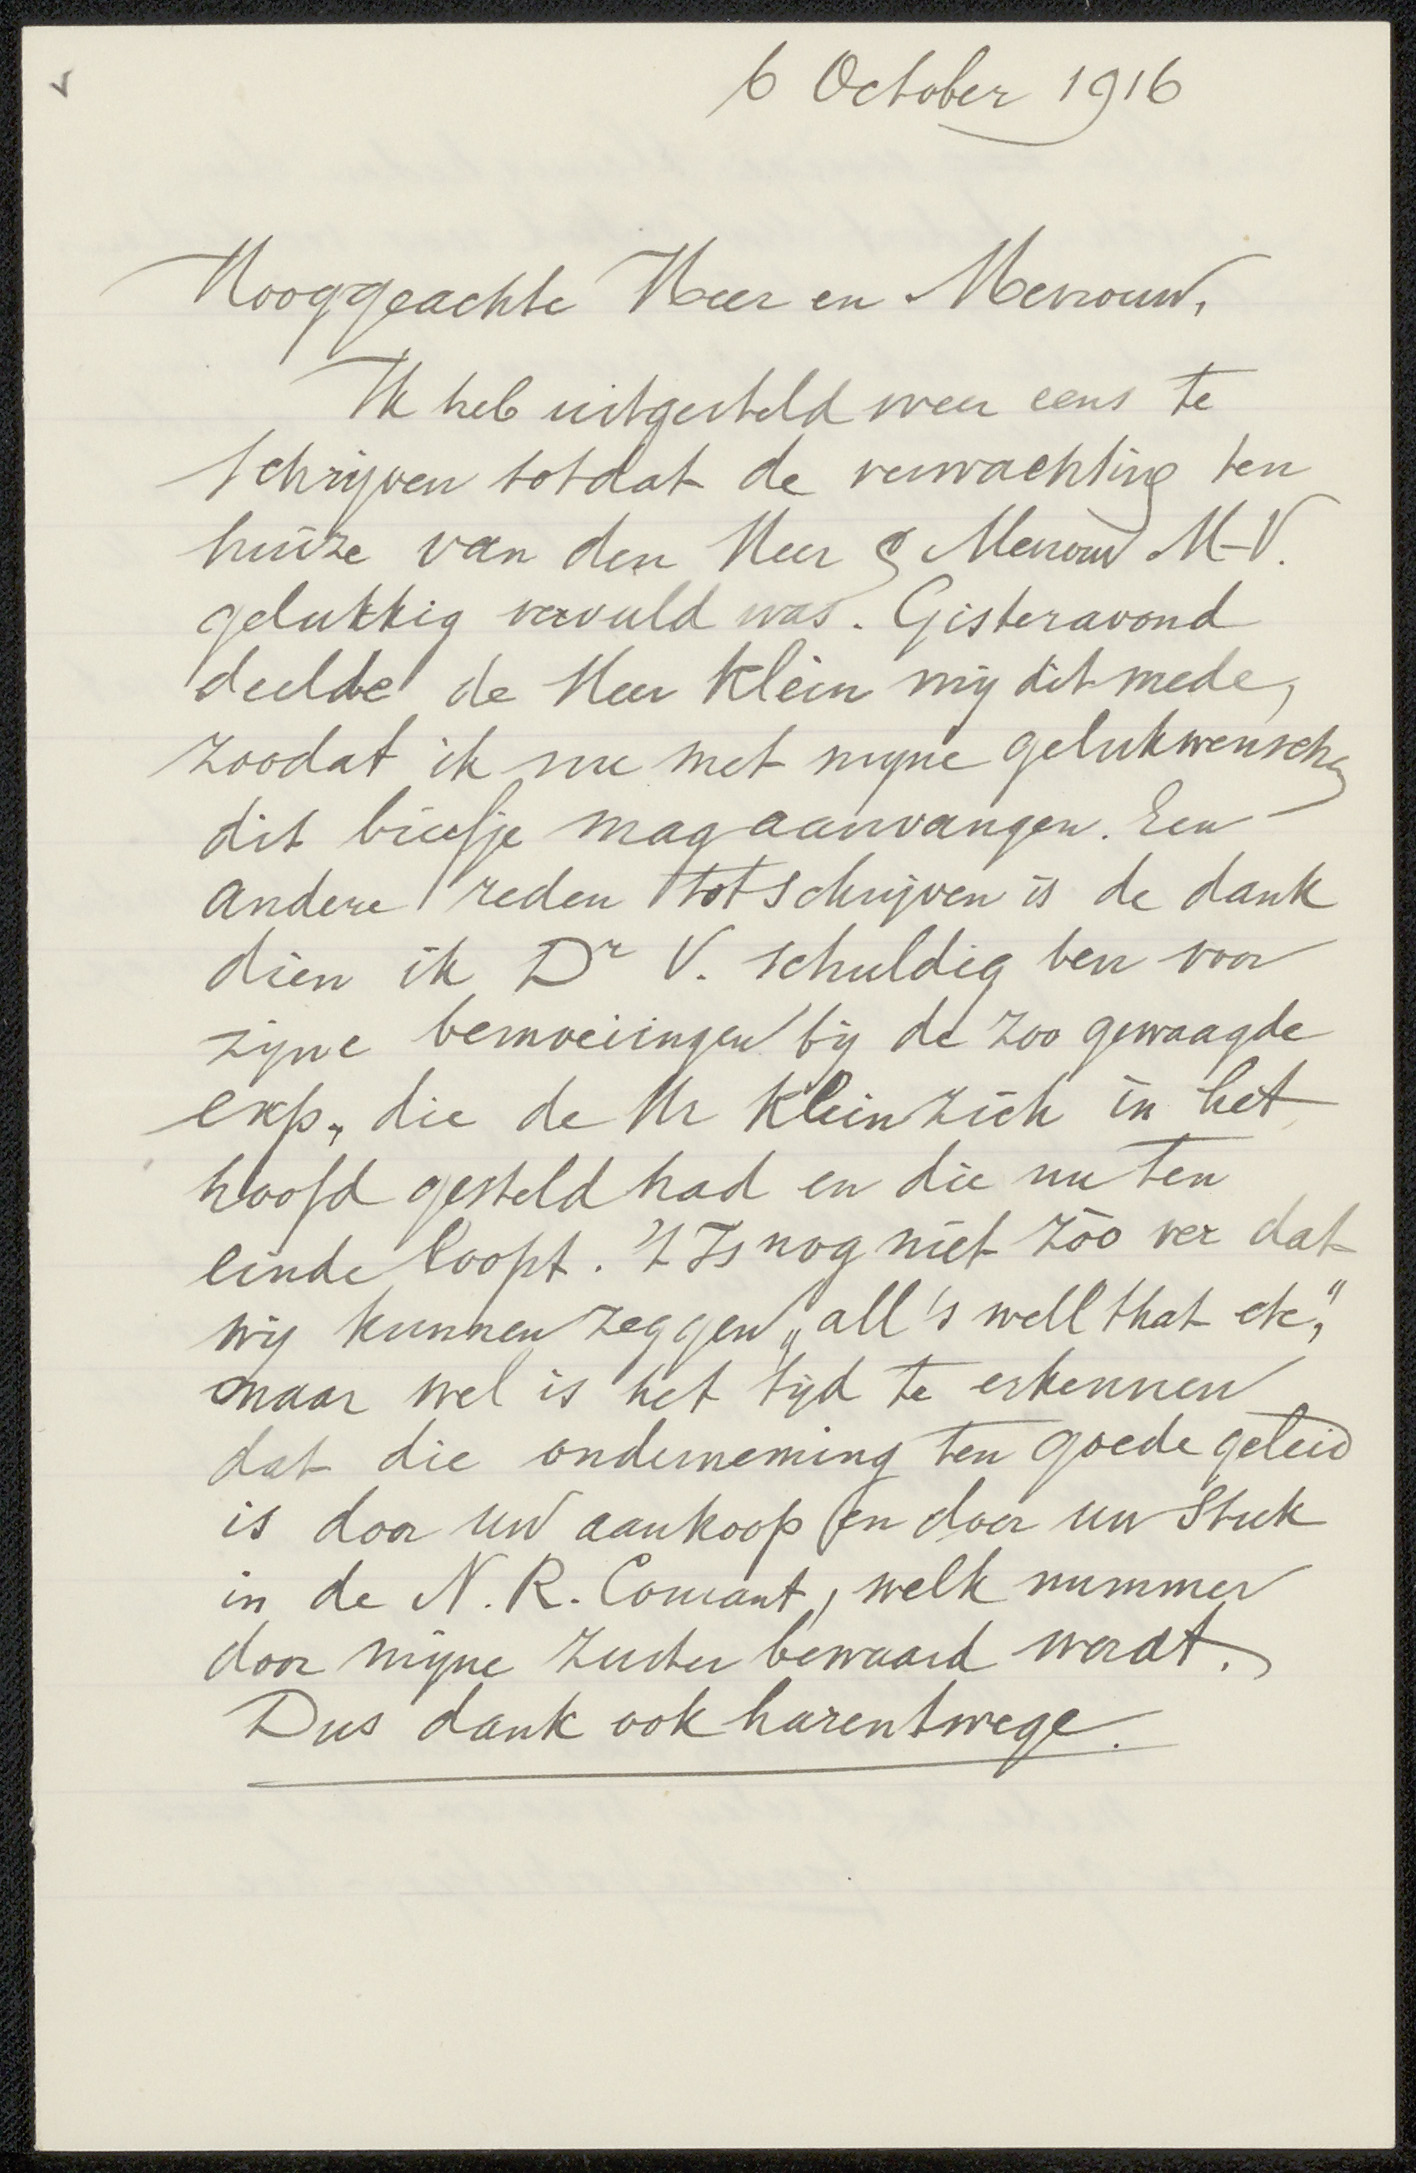 6 October 1916
Hooggeachte Heer en Mevrouw,
Ik heb uitgesteld weer eens te
schrijven totdat de verwachting ten
huize van den Heer & Mevrouw M-V.
gelukkig vervuld was. Gisteravond
deelde de Heer Klein mij dit mede,
zoodat ik nu met mijne gelukwensch
dit briefje mag aanvangen. Een
andere reden tot schrijven is de dank
dien ik Dr V. schuldig ben voor
zijne bemoeiingen bij de zoo gewaagde
exp., die de Hr Klein zich in het
hoofd gesteld had en die nu ten
einde loopt. 't Is nog niet zóo ver dat
wij kunnen zeggen „all's well that etc,"
maar wel is het tijd te erkennen
dat die onderneming ten goede geleid
is door uw aankoop en door uw stuk
in de N. R. Courant, welk nummer
door mijne zuster bewaard wordt.
Dus dank ook harentwege.